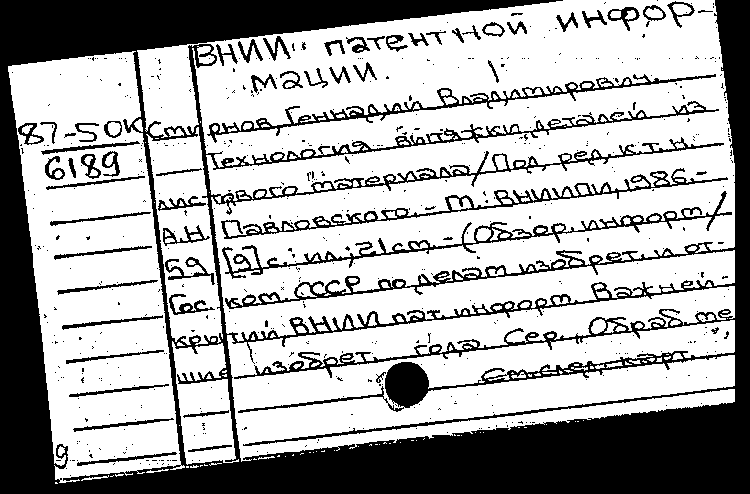 ВНИИ патентной инфор-
мации.
87-50К Смирнов, Геннадий Владимирович.
6189 Технология вытяжки деталей из
листового материала / Под. ред. к.т.н.
А.Н. Павловского. - М.: ВНИИПИ, 1986. -
59, [9] с.: ил.; 21 см. - (Обзор. информ. /
Гос. ком. СССР по делам изобрет. и от-
крытий, ВНИИ пат. информ. Важней-
шие изобрет. года. Сер. „Обраб. ме
См. след. карт.
9